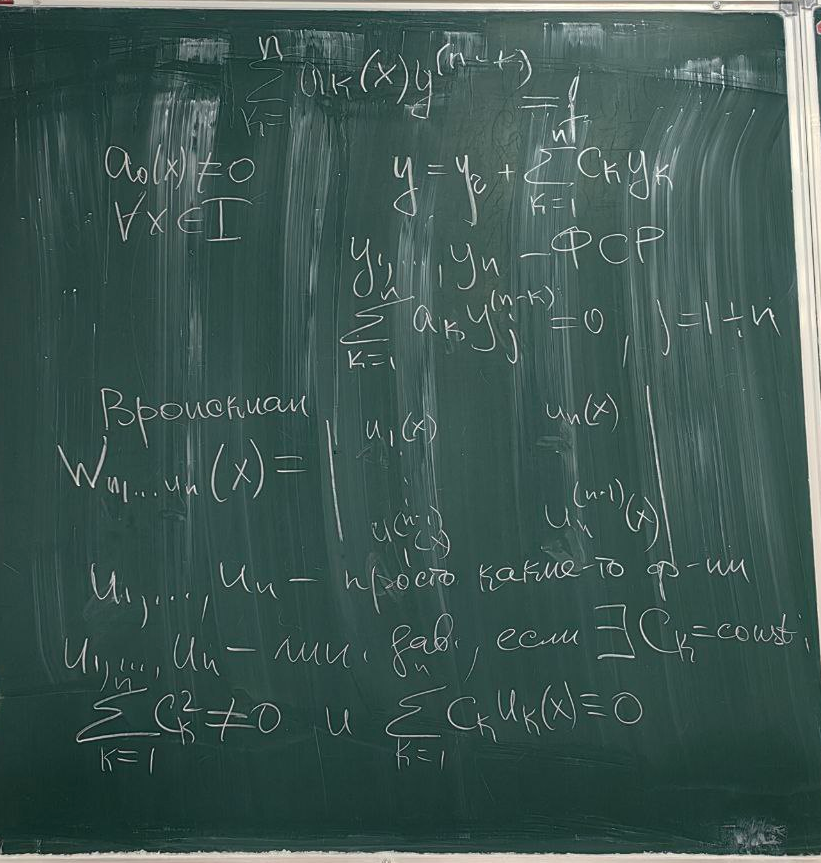 ∑_{k=1}^{n} a_k(x)y^{(n-k)} = f
a₀(x) ≠ 0
∀x ∈ I
y = y_г + ∑_{k=1}^{n} C_k y_k
y₁, ..., y_n – ФСР
∑_{k=1}^{n} a_k y_j^{(n-k)} = 0, j = 1 ÷ n
Вронскиан
W_{u₁...u_n}(x) = | u₁(x) u_n(x) |
⋮
| u₁^{(n-1)}(x) u_n^{(n-1)}(x) |
u₁, ..., u_n – просто какие-то ф-ии
u₁, ..., u_n – лин. зав., если ∃ C_k = const:
∑_{k=1}^{n} C_k² ≠ 0 и ∑_{k=1}^{n} C_k u_k(x) ≡ 0